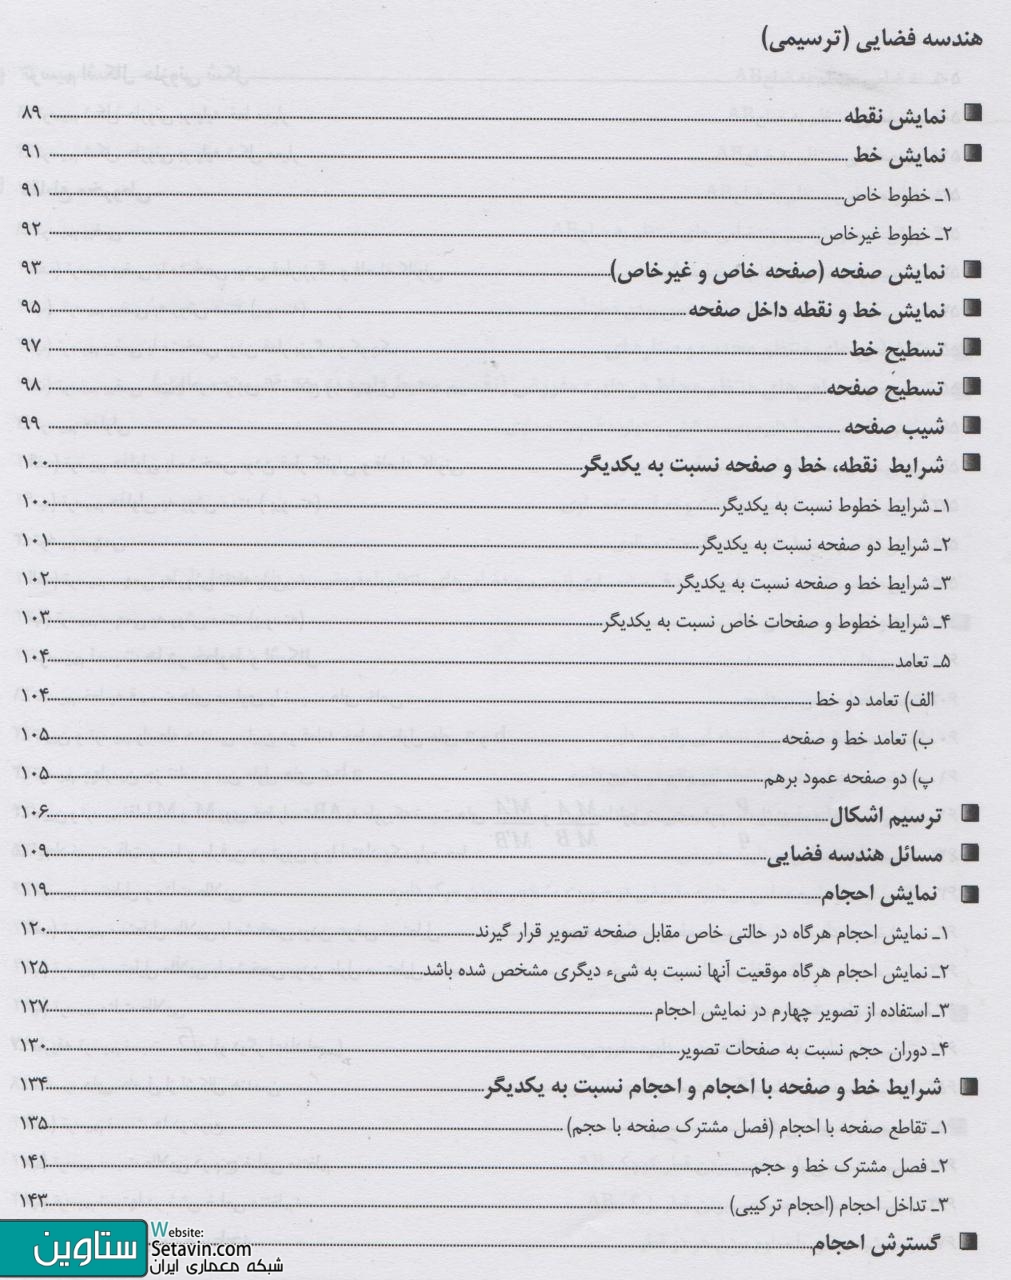 هندسه فضایی (ترسیمی)
نمایش نقطه ۸۹
نمایش خط ۹۱
۱ـ خطوط خاص ۹۱
۲ـ خطوط غیرخاص ۹۲
نمایش صفحه (صفحه خاص و غیرخاص) ۹۳
نمایش خط و نقطه داخل صفحه ۹۵
تسطیح خط ۹۷
تسطیح صفحه ۹۸
شیب صفحه ۹۹
شرایط نقطه، خط و صفحه نسبت به یکدیگر ۱۰۰
۱ـ شرایط خطوط نسبت به یکدیگر ۱۰۰
۲ـ شرایط دو صفحه نسبت به یکدیگر ۱۰۱
۳ـ شرایط خط و صفحه نسبت به یکدیگر ۱۰۲
۴ـ شرایط خطوط و صفحات خاص نسبت به یکدیگر ۱۰۳
۵ـ تعامد ۱۰۴
الف) تعامد دو خط ۱۰۴
ب) تعامد خط و صفحه ۱۰۵
پ) دو صفحه عمود برهم ۱۰۵
ترسیم اشکال ۱۰۶
مسائل هندسه فضایی ۱۰۹
نمایش احجام ۱۱۹
۱ـ نمایش احجام هرگاه در حالتی خاص مقابل صفحه تصویر قرار گیرند ۱۲۰
۲ـ نمایش احجام هرگاه موقعیت آنها نسبت به شیء دیگری مشخص شده باشد ۱۲۵
۳ـ استفاده از تصویر چهارم در نمایش احجام ۱۲۷
۴ـ دوران حجم نسبت به صفحات تصویر ۱۳۰
شرایط خط و صفحه با احجام و احجام نسبت به یکدیگر ۱۳۴
۱ـ تقاطع صفحه با احجام (فصل مشترک صفحه با حجم) ۱۳۵
۲ـ فصل مشترک خط و حجم ۱۴۱
۳ـ تداخل احجام (احجام ترکیبی) ۱۴۳
گسترش احجام
ستاوین
Website:
Setavin.com
شبکه معماری ایران